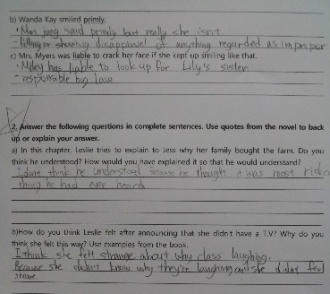 b) Wanda Kay smiled primly.
- Miss said primly but really she isn't
- feeling or showing disapproval of anything regarded as improper
c) Mrs. Myers was liable to crack her face if she kept up smiling like that.
- Miley has liable to look up for Lily's sister
- responsible by law
2. Answer the following questions in complete sentences. Use quotes from the novel to back
up or explain your answer.
a) In this chapter, Leslie tries to explain to Jess why her family bought the farm. Do you
think he understood? How would you have explained it so that he would understand?
I don't think he understood because he thought it was most
thing he had ever heard
b)How do you think Leslie felt after announcing that she didn't have a T.V? Why do you
think she felt this way? Use examples from the book.
I think she felt strange about why class laughing.
Because she didn't know why they're laughing and she didn't feel
shame.